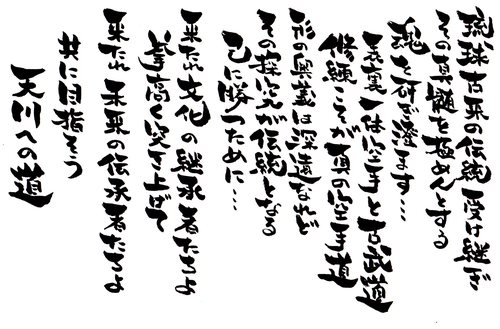 琉球古来の伝統受け継ぎ
その真髄を極めんとする
魂を研ぎ澄ます…
表裏一体空手と古武道
修練こそが真の空手道
形の奥義は深遠なれど
その探究が伝統となる
己に勝つために…
来たれ文化の継承者たちよ
拳高く突き上げて
来たれ未来の伝承者たちよ
共に目指そう
天川への道